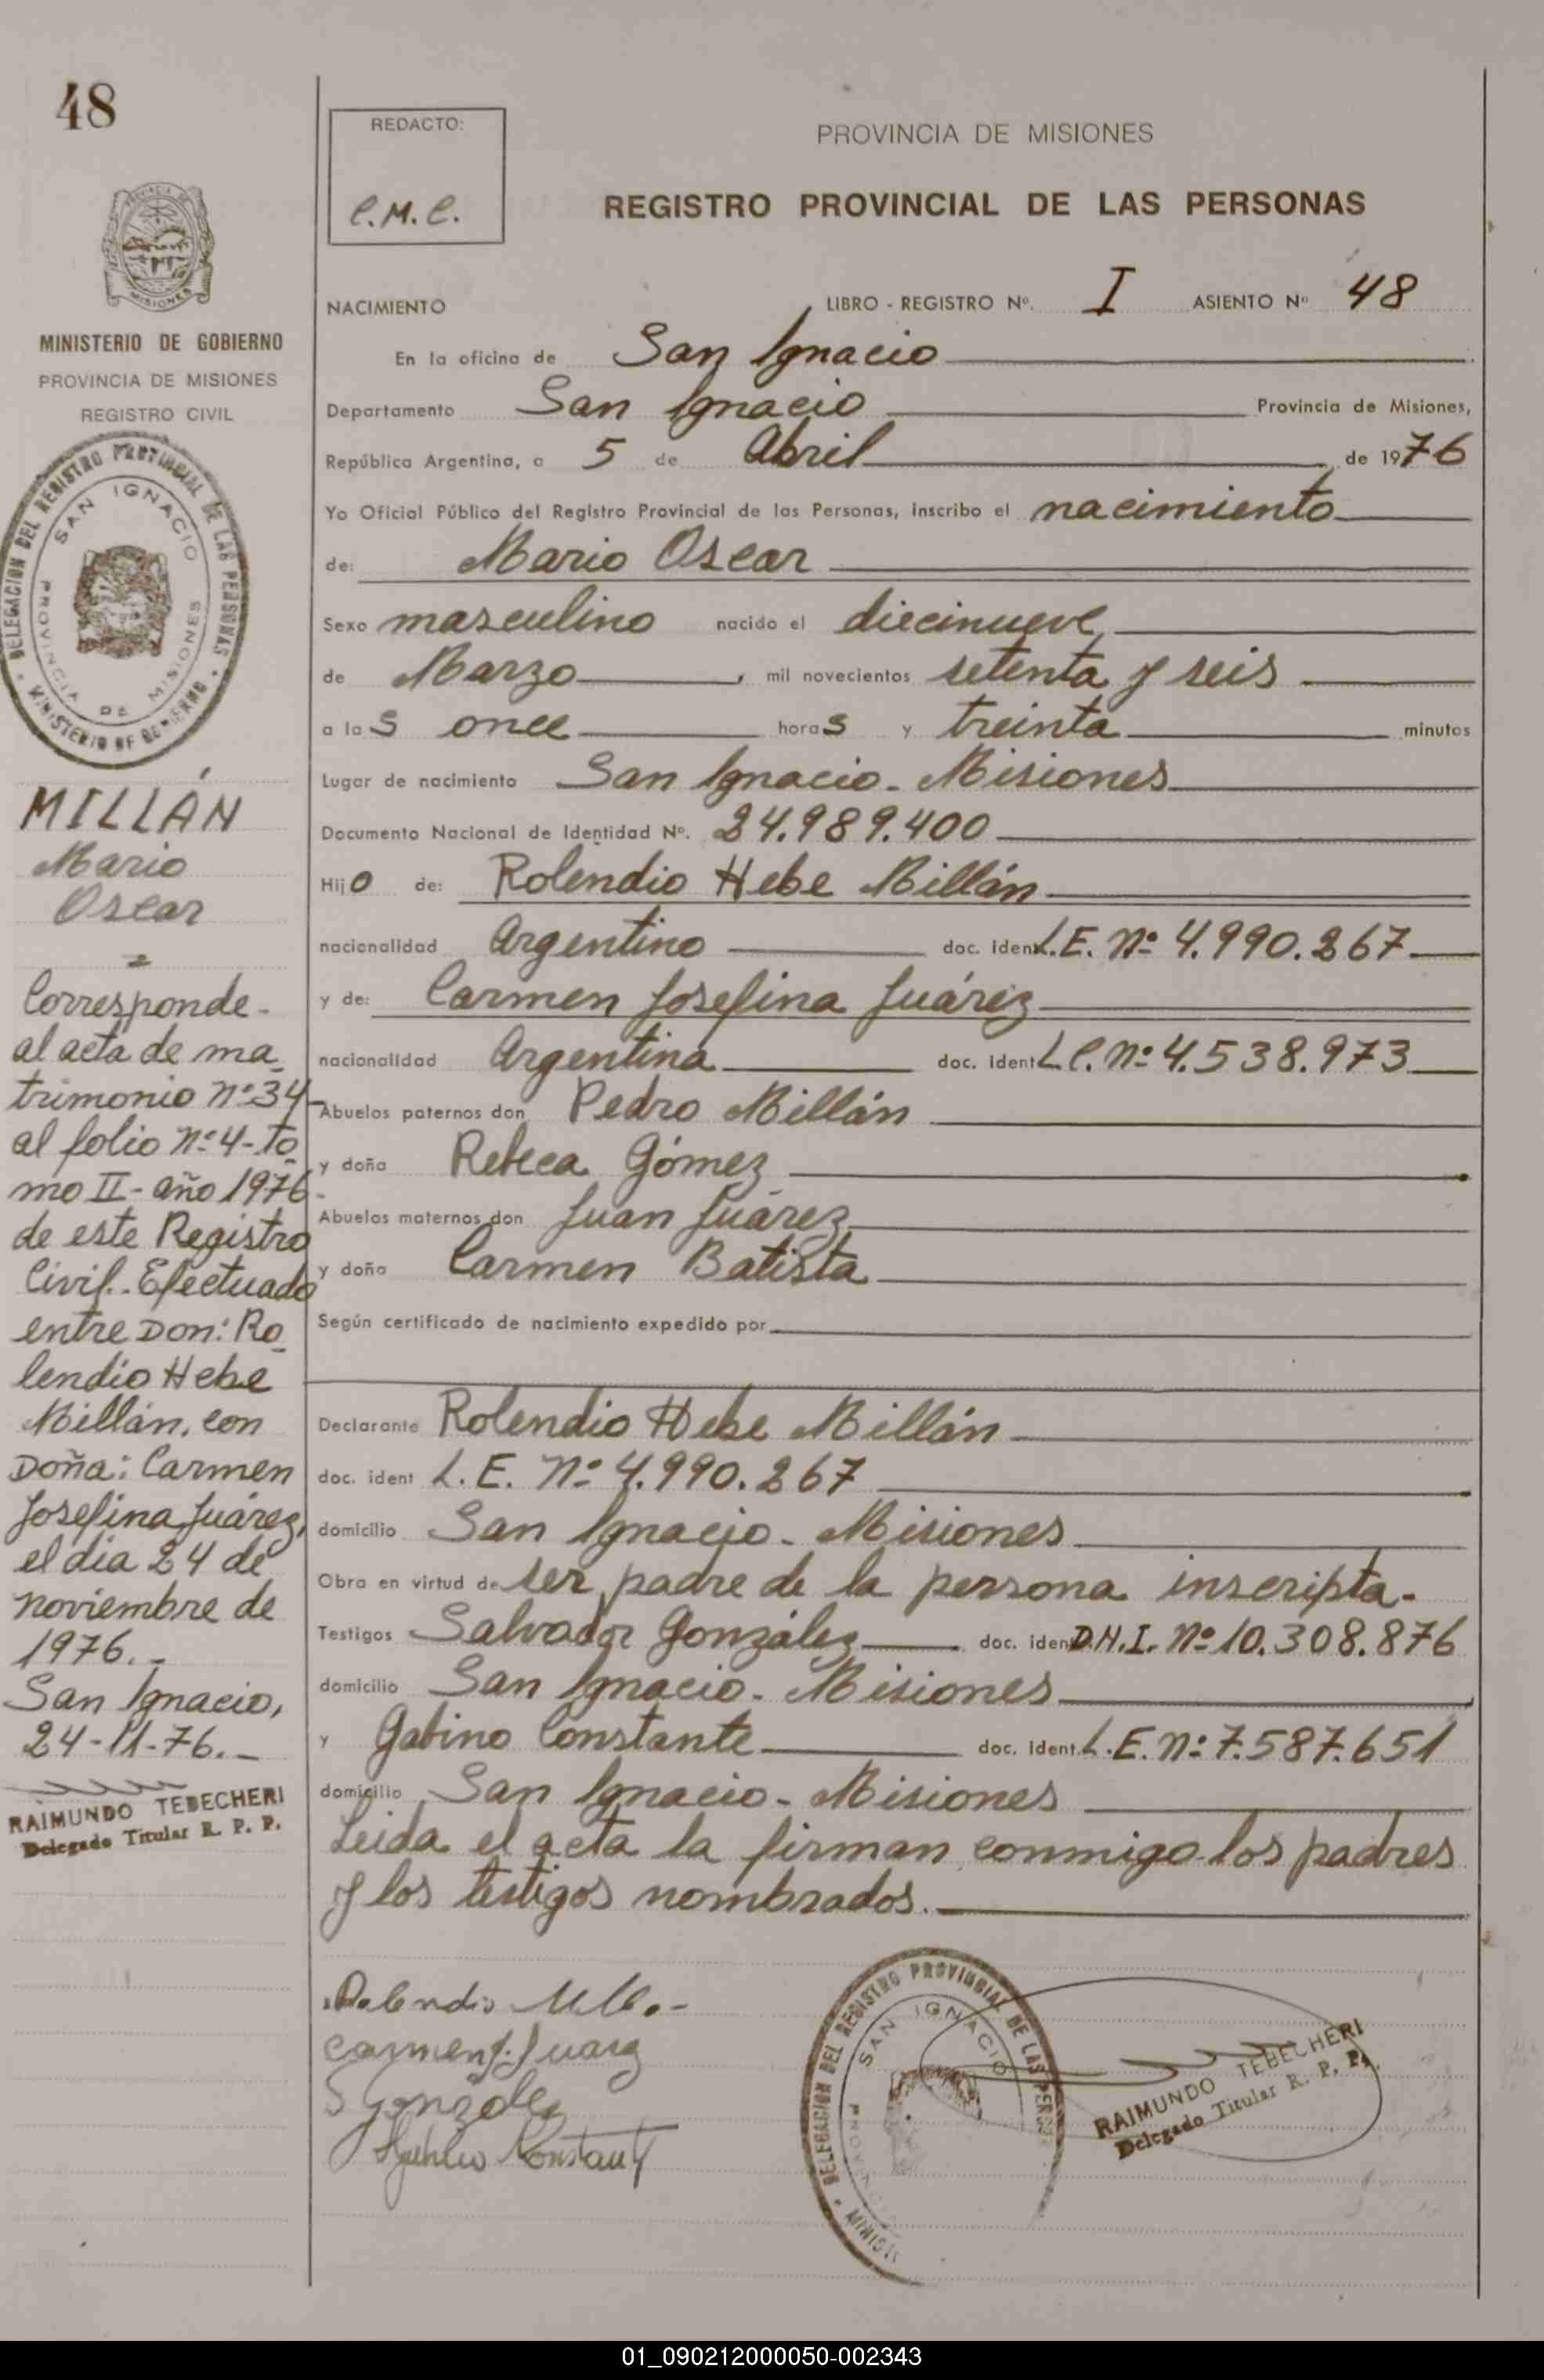 48
PROVINCIA DE
MISIONES
MINISTERIO DE GOBIERNO
PROVINCIA DE MISIONES
REGISTRO CIVIL
DELEGACION DEL REGISTRO PROVINCIAL DE LAS PERSONAS
MINISTERIO DE GOBIERNO
SAN IGNACIO
PROVINCIA DE MISIONES
MILLÁN
Mario
Oscar
Corresponde-
al acta de ma_
trimonio nº 34-
al folio nº 4-To_
mo II- año 1976-
de este Registro
Civil.-Efectuado
entre Don: Ro_
lendio Hebe
Millán, con
Doña: Carmen
Josefina Juárez,
el día 24 de
noviembre de
1976.-
San Ignacio,
24-11-76.-
RAIMUNDO TEBECHERI
Delegado Titular R. P. P.
REDACTO:
C.M.C.
PROVINCIA DE MISIONES
REGISTRO PROVINCIAL DE LAS PERSONAS
NACIMIENTO LIBRO - REGISTRO Nº. I ASIENTO Nº 48
En la oficina de San Ignacio
Departamento San Ignacio Provincia de Misiones,
República Argentina, a 5 de Abril de 1976
Yo Oficial Público del Registro Provincial de las Personas, inscribo el nacimiento
de: Mario Oscar
Sexo masculino nacido el diecinueve
de Marzo, mil novecientos setenta y seis
a las once horas y treinta minutos
Lugar de nacimiento San Ignacio - Misiones
Documento Nacional de Identidad Nº. 24.989.400
Hijo de: Rolendio Hebe Millán
nacionalidad Argentino doc. ident L.E. nº 4.990.267
y de: Carmen Josefina Juárez
nacionalidad Argentina doc. ident L.C. nº 4.538.973
Abuelos paternos don Pedro Millán
y doña Rebeca Gómez
Abuelos maternos don Juan Juárez
y doña Carmen Batista
Según certificado de nacimiento expedido por
Declarante Rolendio Hebe Millán
doc. ident L.E. nº 4.990.267
domicilio San Ignacio - Misiones
Obra en virtud de ser padre de la persona inscripta.
Testigos Salvador González doc. ident D.N.I. nº 10.308.876
domicilio San Ignacio - Misiones
y Gabino Constante doc. ident. L.E. nº 7.587.651
domicilio San Ignacio - Misiones
Leída el acta la firman conmigo los padres
y los testigos nombrados.
Rolendio
Carmen J. Juarez
S Gonzalez
DELEGACION DEL REGISTRO PROVINCIAL DE LAS PERSO
SAN IGNACIO
RAIMUNDO TEBECHERI
Delegado Titular R. P. P.
01_090212000050-002343